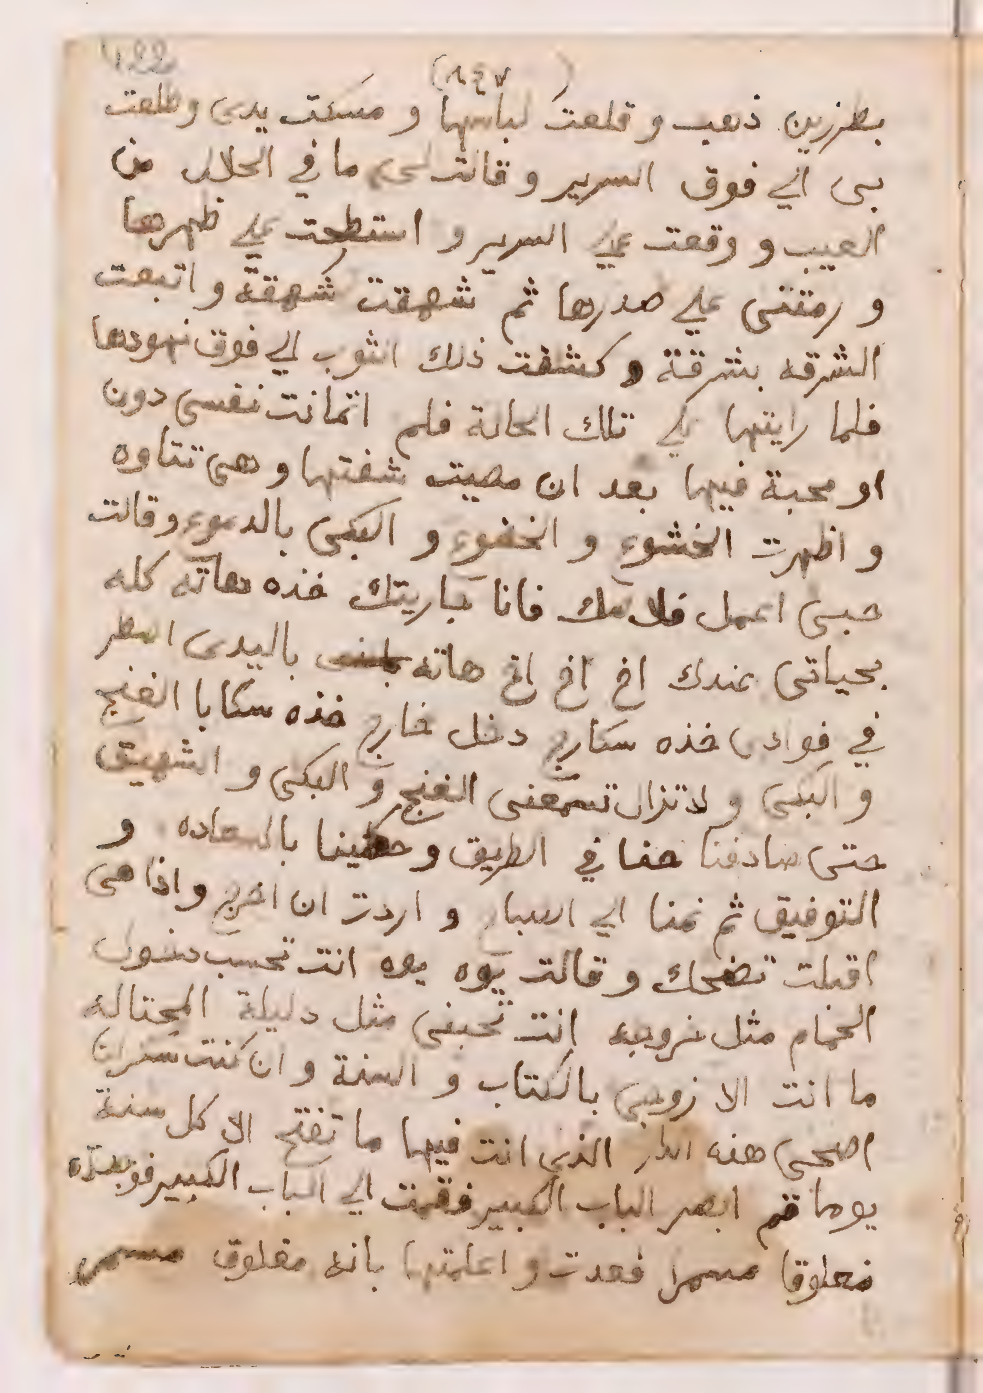 (٨٤٧)
بطرزين ذهب و قلعت لباسها و مسكت يدى و طلعت
بى الي فوق السرير و قالت لى ما في الحلال من
العيب و وقعت علي السرير و استطحت علي ظهرها
و رمتنى علي صدرها ثم شهقت شهقة و اتبعت
الشرقه بشرقة و كشفت ذلك الثوب الي فوق نهودها
فلما رايتها علي تلك الحالة فلم اتمانت نفسى دون
او محبة فيها بعد ان مصيت شفتها و هى تتاوه
و اظهرت الخشوع و الخضوع و البكى بالدموع وقالت
حبيبى اعمل فانا جاريتك خذه هاته كله
بحياتى عندك اخ اخ اخ هاته باليدى
في فوادى خذه دخل خارج خذه الغنج
و البكى و لا تزال تسمعنى الغنج و البكى و الشهيق
حتى صادفنا في الطريق و حظينا بالسعاده و
التوفيق ثم نمنا الي الصباح و اردت ان اخرج و اذا هى
اقبلت تضحك و قالت يوه يوه انت تحسب دخول
الحمام مثل خروجه انت تحبنى مثل دليلة المحتاله
ما انت الا زوجى بالكتاب و السنة و ان كنت سكران
اصحى هذه الدار الذي انت فيها ما تفتح الا كل سنة
يوما قم ابصر الباب الكبير فقمت الي الباب الكبير فوجدته
مغلوقا مسمرا فعدت و اعلمتها بانه مغلوق مسمر